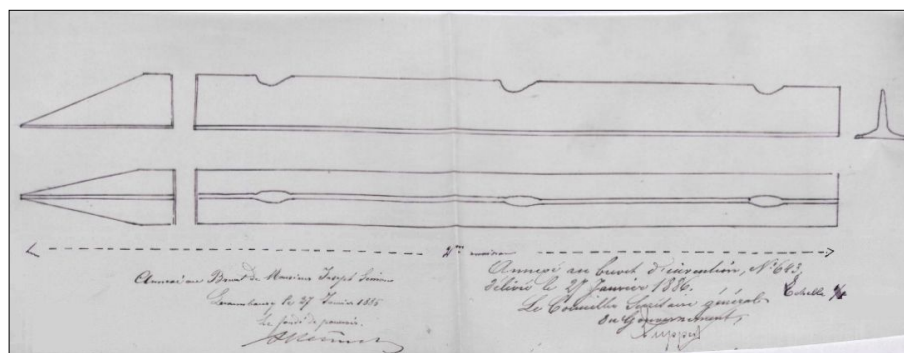 2 m environ
Annexé au Brevet de Monsieur Joseph
Luxembourg le 27 Janvier 1886
Le fondé de pouvoir.
Annexé au brevet d'invention, N° 603
délivré le 27 Janvier 1886.
Le Conseiller Secrétaire général
du Gouvernement,
Ruppert
Echelle